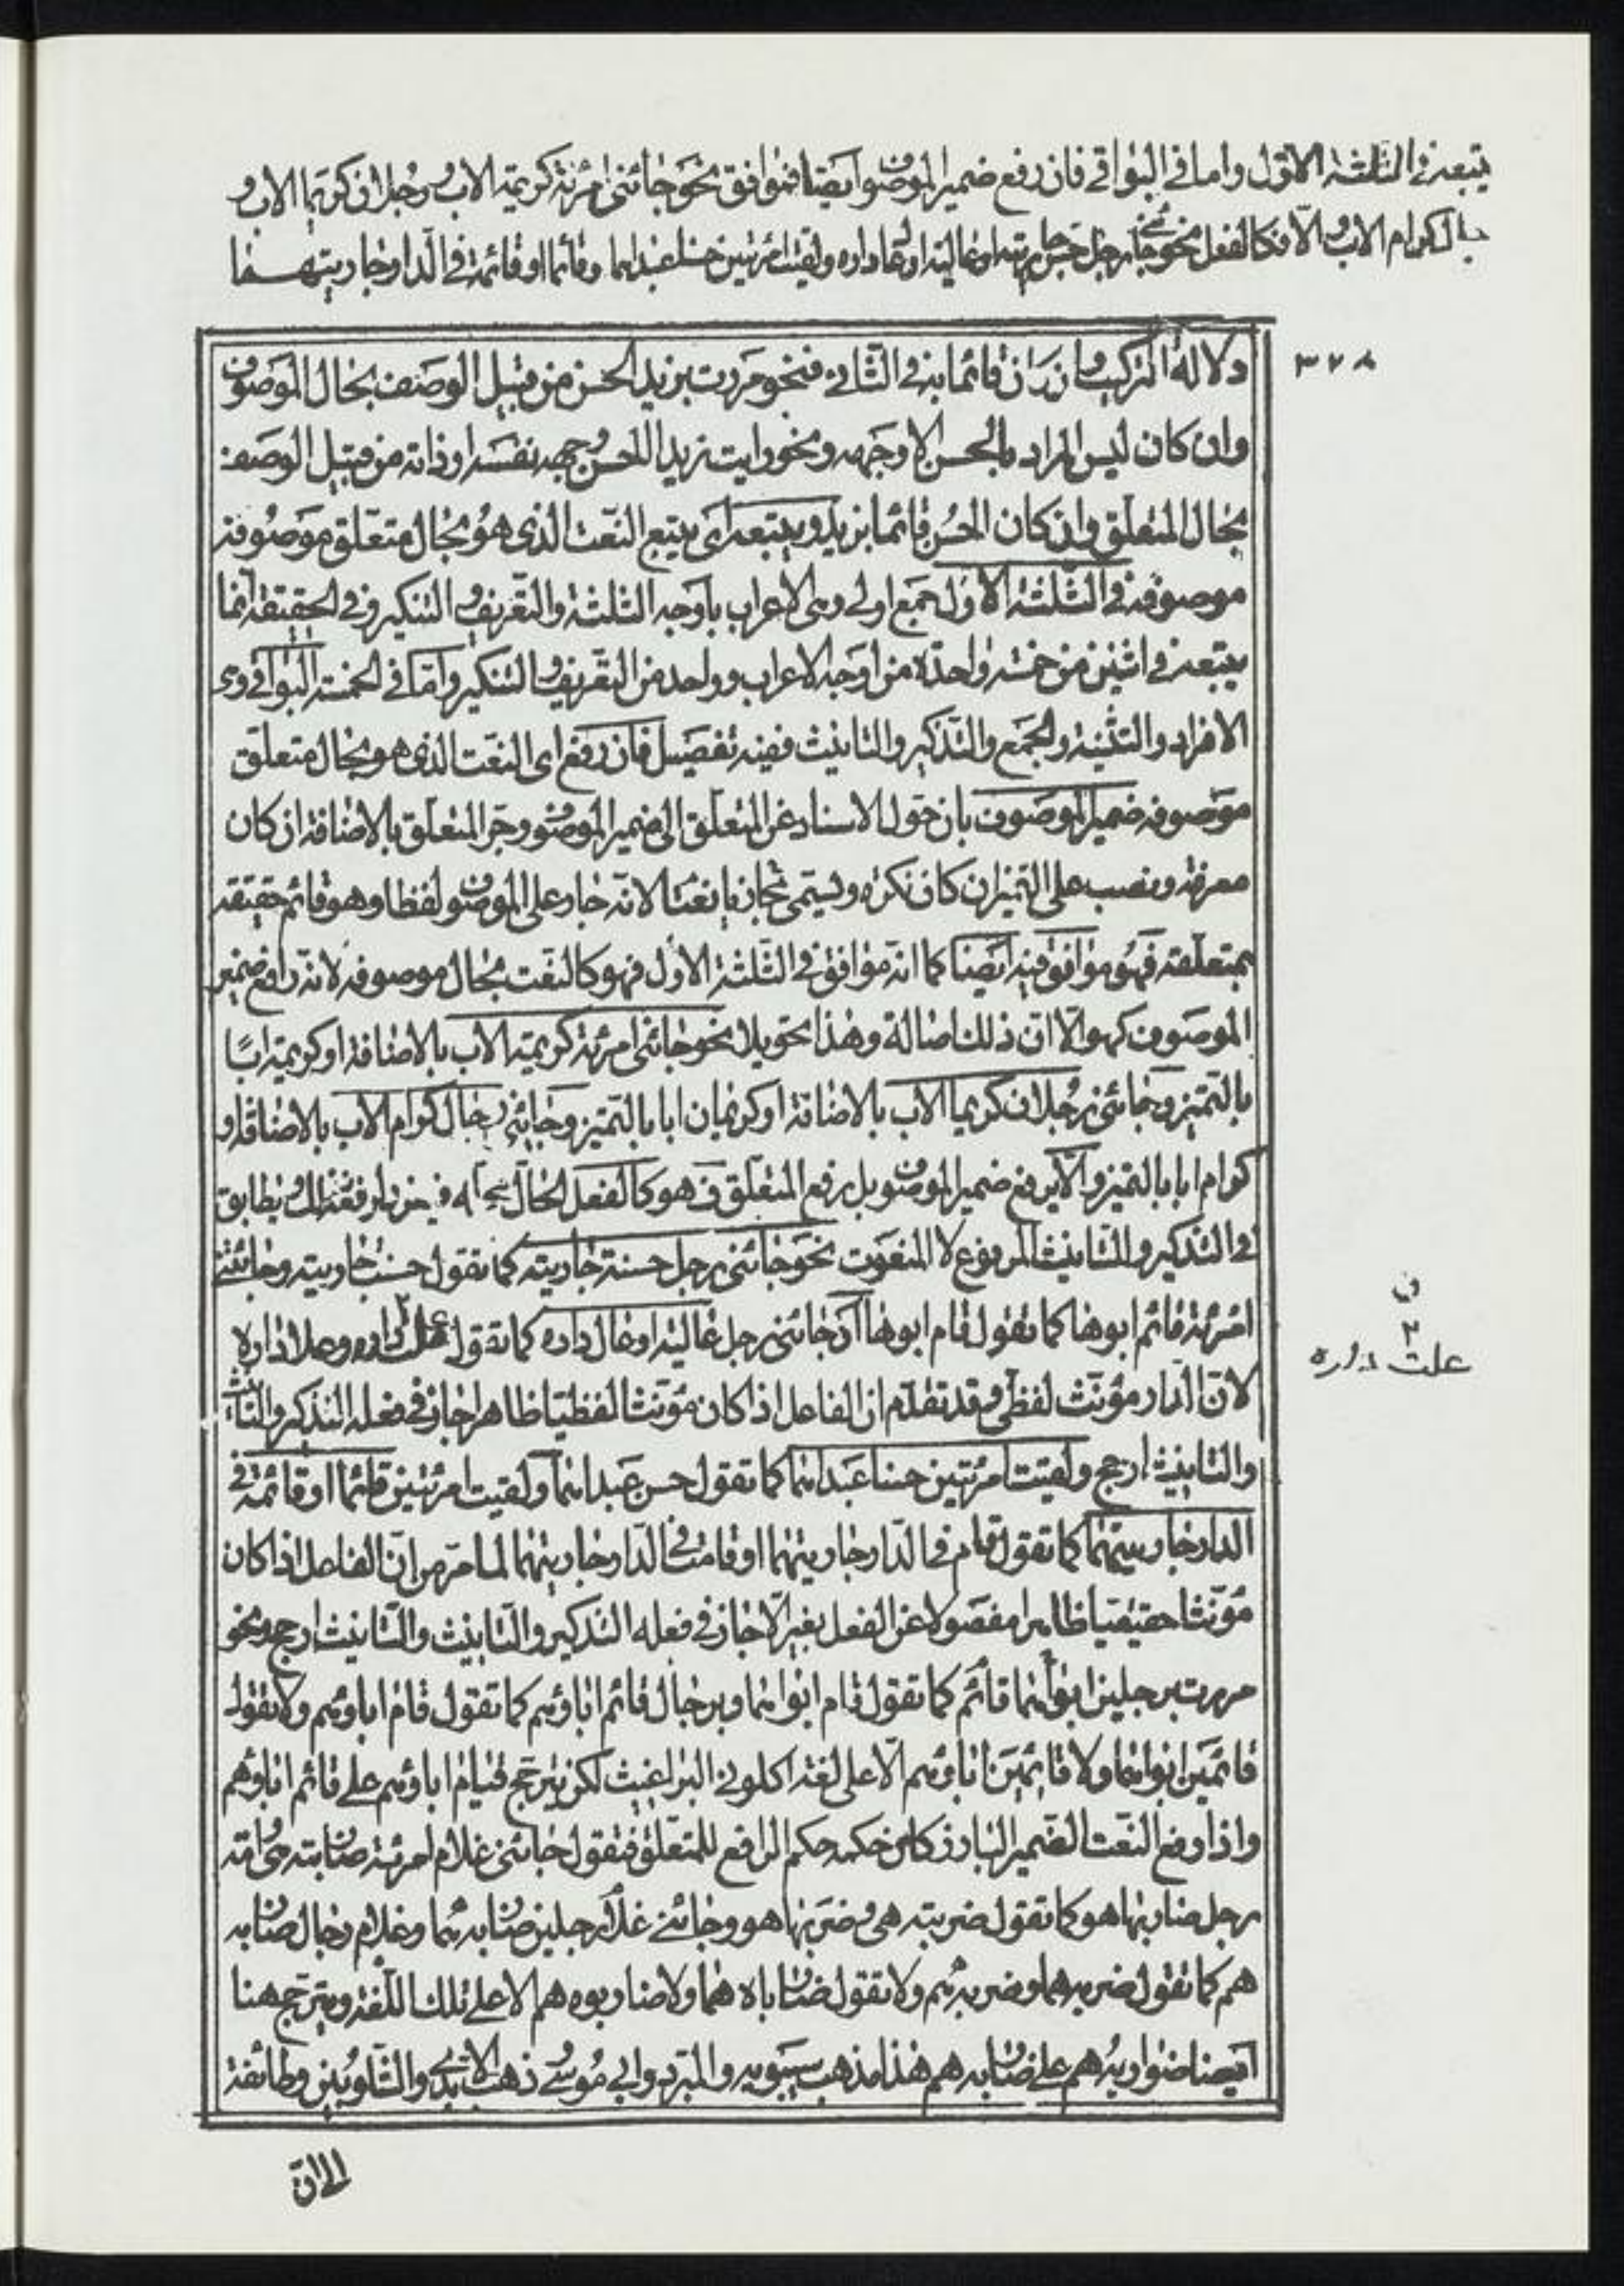 يتبعه في الثلثة الاول واما في البواقي فان رفع ضمير الموصوف ايضا فموافق نحو جائني امرئة كريمة الاب ورجلان كريما الاب و
رجال كرام الاب والا فكالفعل نحو جائني رجل حسن جاريته او عالية او عال داره ولقيت امرئتين حسنا عبداهما وقائما او قائمة في الدار جاريتهما
٣٧٨
دلالة التركيب وان كان قائما به في الثاني فنحو مررت بزيد الحسن من قبيل الوصف بحال الموصوف
وان كان ليس المراد بالحسن الا وجهه ونحو رايت زيدا الحسن وجهه نفسه او ذاته من قبيل الوصف
بحال المتعلق وان كان الحسن قائما بزيد ويتبعه اى يتبع النعت الذى هو بحال متعلق موصوفه
موصوفه في الثلثة الاول جمع اولى وهى الاعراب باوجه الثلثة والتعريف والتنكير وفي الحقيقة انما
يتبعه في اثنين من خمسة واحدة من اوجه الاعراب وواحد من التعريف والتنكير واما في الخمسة البواقي وهى
الافراد والتثنية والجمع والتذكير والتانيث ففيه تفصيل فان رفع اى النعت الذى هو بحال متعلق
موصوفه ضمير الموصوف بان حول الاسناد عن المتعلق الى ضمير الموصوف وجر المتعلق بالاضافة ان كان
معرفة ونصب على التميز ان كان نكرة ويسمى مجازيا نعتا لانه جار على الموصوف لفظا وهو قائم حقيقة
بمتعلقه فهو موافق فيه ايضا كما انه موافق في الثلثة الاول فهو كالنعت بحال موصوفه لانه رافع ضمير
الموصوف كهو الا ان ذلك اصالة وهذا تحويلا نحو جائني امرئة كريمة الاب بالاضافة او كريمة ابا
بالتميز وجائني رجلان كريما الاب بالاضافة او كريمان ابا بالتميز وجائني رجال كرام الاب بالاضافة او
كرام ابا بالتميز والا يرفع ضمير الموصوف بل يرفع المتعلق فهو كالفعل الحال
في التذكير والتانيث المرفوع لا المنعوت نحو جائني رجل حسنة جاريته كما تقول حسنت جاريته وجائتني
امرئة قائم ابوها كما تقول قام ابوها او جائني رجل عالية او عال داره كما تقول علت داره وعلا داره
ن
٣
علت داره
لان الدار مؤنث لفظي وقد تقدم ان الفاعل اذا كان مؤنثا لفظيا ظاهرا جاز في فعله التذكير والتانيث
والتانيث ارجح ولقيت امرئتين حسنا عبداهما كما تقول حسن عبداهما ولقيت امرئتين قائما او قائمة في
الدار جاريتهما كما تقول قام في الدار جاريتهما او قامت في الدار جاريتهما لما مر من ان الفاعل اذا كان
مؤنثا حقيقيا ظاهرا مفصولا عن الفعل بغير الا جاز في فعله التذكير والتانيث والتانيث ارجح ونحو
مررت برجلين ابواهما قائم كما تقول قام ابواهما وبرجال قائم اباؤهم كما تقول قام اباؤهم ولا تقول
قائمين ابواهما ولا قائمين اباؤهم الا على لغة اكلوني البراغيث لكن يترجح قيام اباؤهم على قائم اباؤهم
واذا رفع النعت الضمير البارز كان حكمه حكم الرافع للمتعلق فتقول جائني غلام امرئة ضاربته هى وامة
رجل ضاربها هو كما تقول ضربته هى وضربها هو وجائني غلام رجلين ضاربه هما وغلام رجال ضاربه
هم كما تقول ضربه هما وضربه هم ولا تقول ضارباه هما ولا ضاربوه هم الا على تلك اللغة ويترجح هنا
ايضا ضواربه هم على ضاربه هم هذا مذهب سيبويه والمبرد وابي موسى ذهب الابدي والشلوبين وطائفة
الى ان